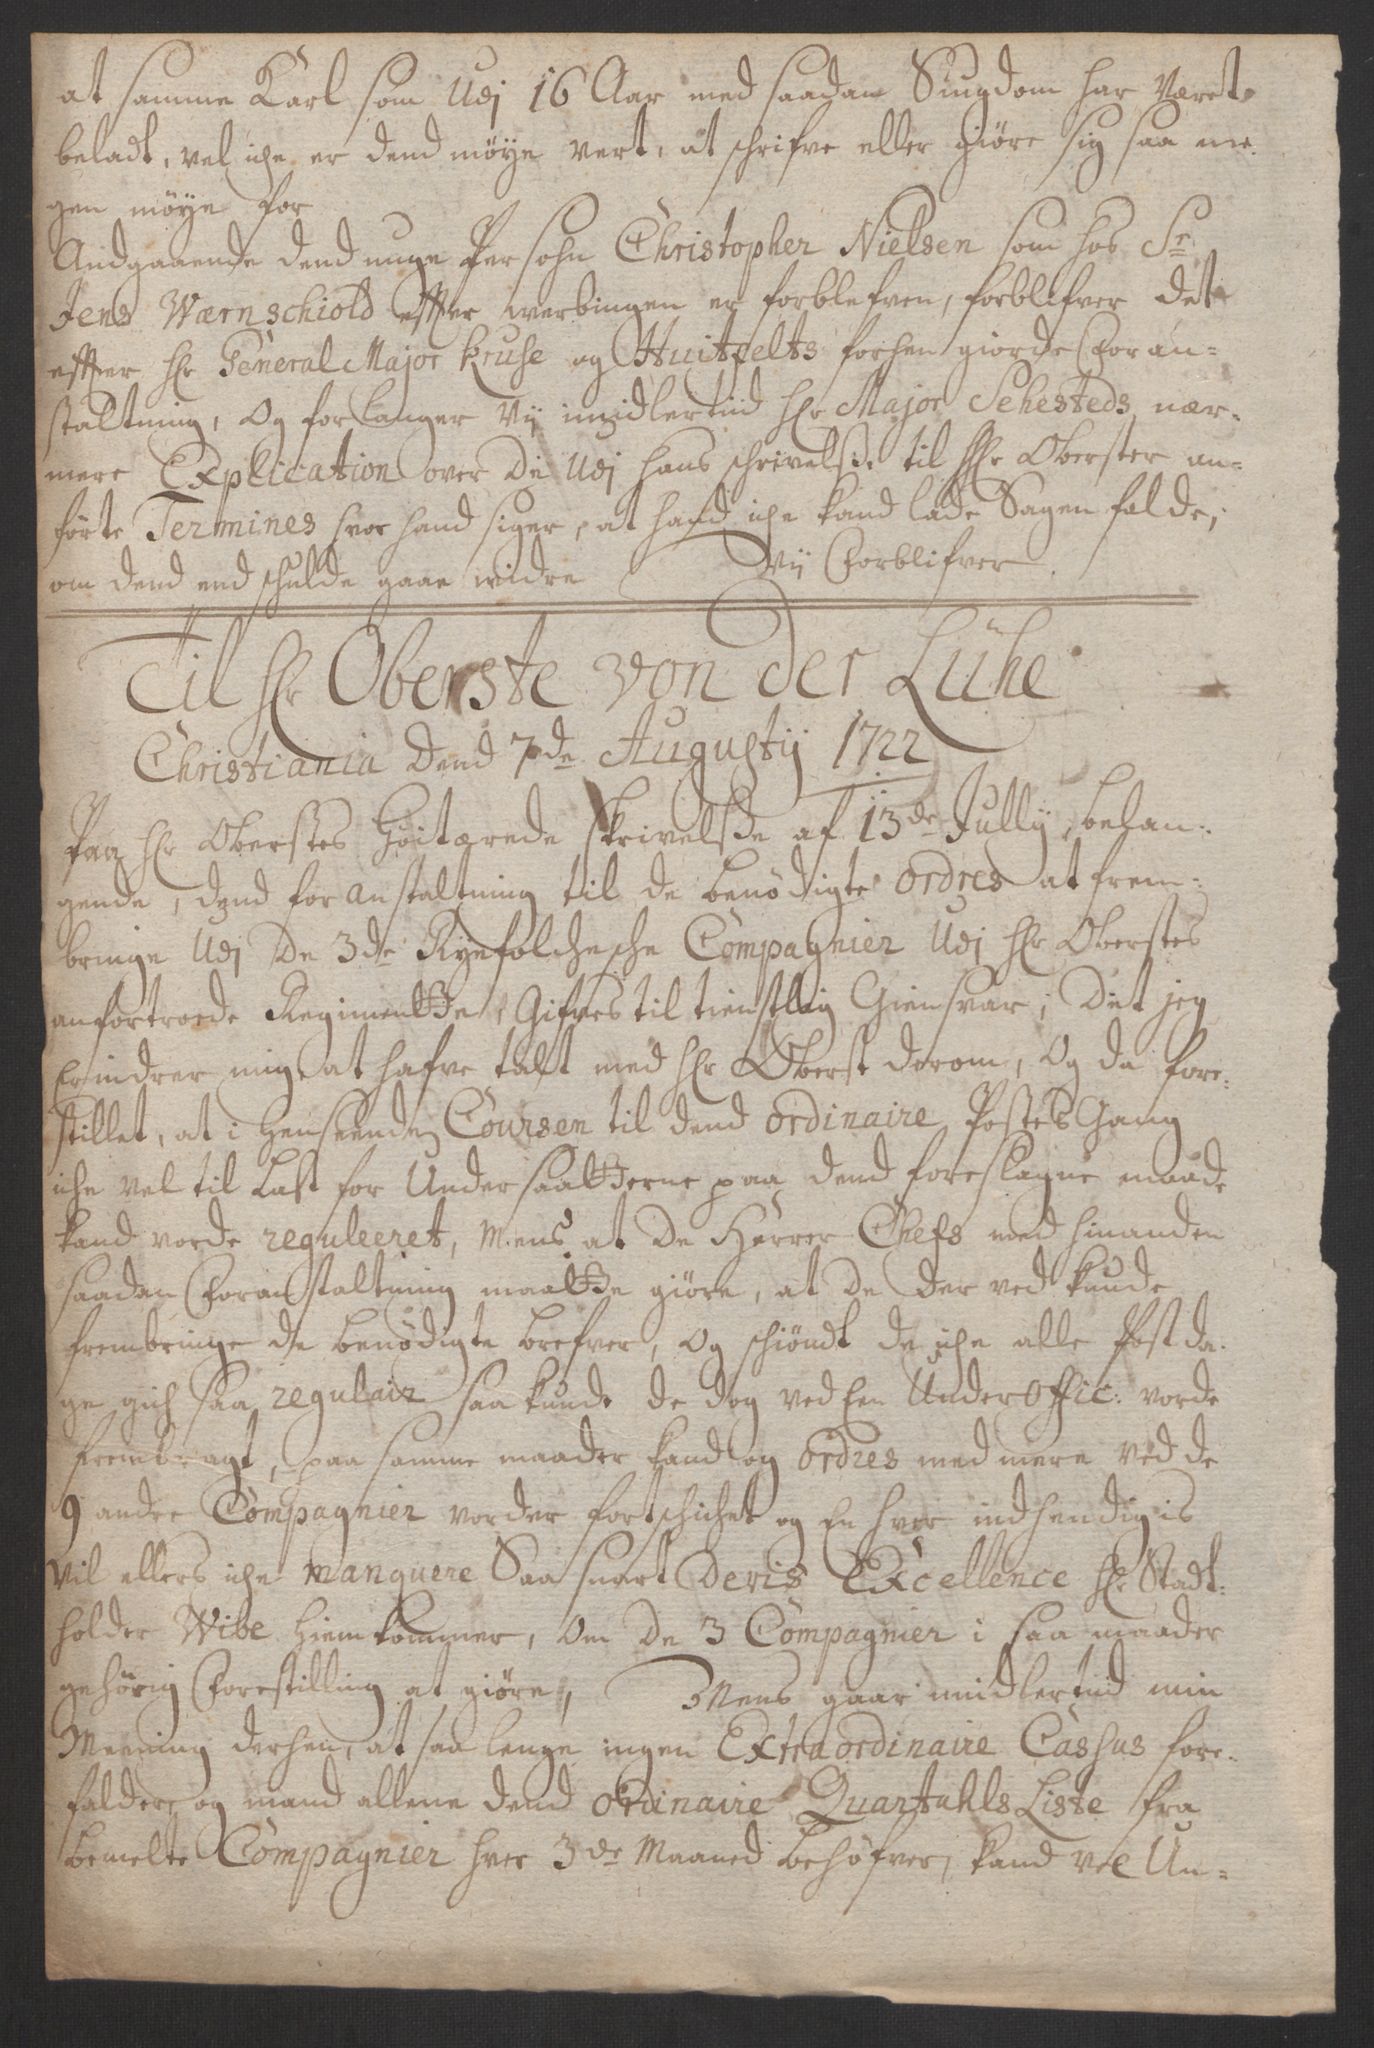 at samme Karl som Udj 16 Aar med saadan Siugdom har Været
beladt, vel iche er dend möye vert, at schrifve eller giöre sig saa me-
gen möye for
Andgaaende dend unge Persohn Christopher Nielsen som hos Sr
Jens Wærnschiold effter werbingen er forblefven, forblifver det
effter Hr General Major Kruse og Huitfelts forhen giorde Foran=
staltning, Og forlanger Vij imidlertiid Hr Major Sehesteds nær-
mere Explication over De Udj hans schrivelsse til Hr Oberster an=
förte Termines hvor hand siger, at hand iche kand lade Sagen falde,
om dend end schulde gaae widre Vij Forblifver
Til Hr Oberste von der Lühe
Christiania Dend 7de Augustij 1722
Paa Hr Oberstes Höitærede skrivelsse af 13de Jullij, belan-
gende, dend foranstaltning til de benödigte Ordres at frem-
bringe Udj De 3de Ryefolchesche Compagnier Udj Hr Oberstes
anfortroede Regimentte, Gifves til tienstlig Giensvar; Det jeg
Erindrer mig at hafve talt med Hr Oberst derom, Og da fore-
stillet, at i Henseende Coursen til dend ordinaire Postes Gang
iche vel til Last for Undersaatterne paa dend foreslagne maade
kand vorde reguleeret, Mens at De Herrer Chefs med hinanden
saadan Foranstaltning maatte giöre, at De der ved kunde
frembringe de benödigte brefver, Og schiöndt de iche alle Postda-
ge gich saa regulair saa kunde de dog ved Een Under Offic: vorde
frembragt, paa samme maader kand og Ordres med mere ved de
9 andre Compagnier vorder fortschichet og En hver indhendigis
Vil ellers iche manquere Saa snart Deris Excellence Hr Stadt-
holder Wibe hiemkommer, Om De 3 Compagnier i saa maader
gehörig Forestilling at giöre, Mens gaar imidlertiid min
Meening derhen, at saa lenge ingen Extraordinaire Cassus fore-
falder, og mand allene dend Ordinaire Quartahls Liste fra
bemelte Compagnier hver 3de Maaned behöfver, kand vel Un=